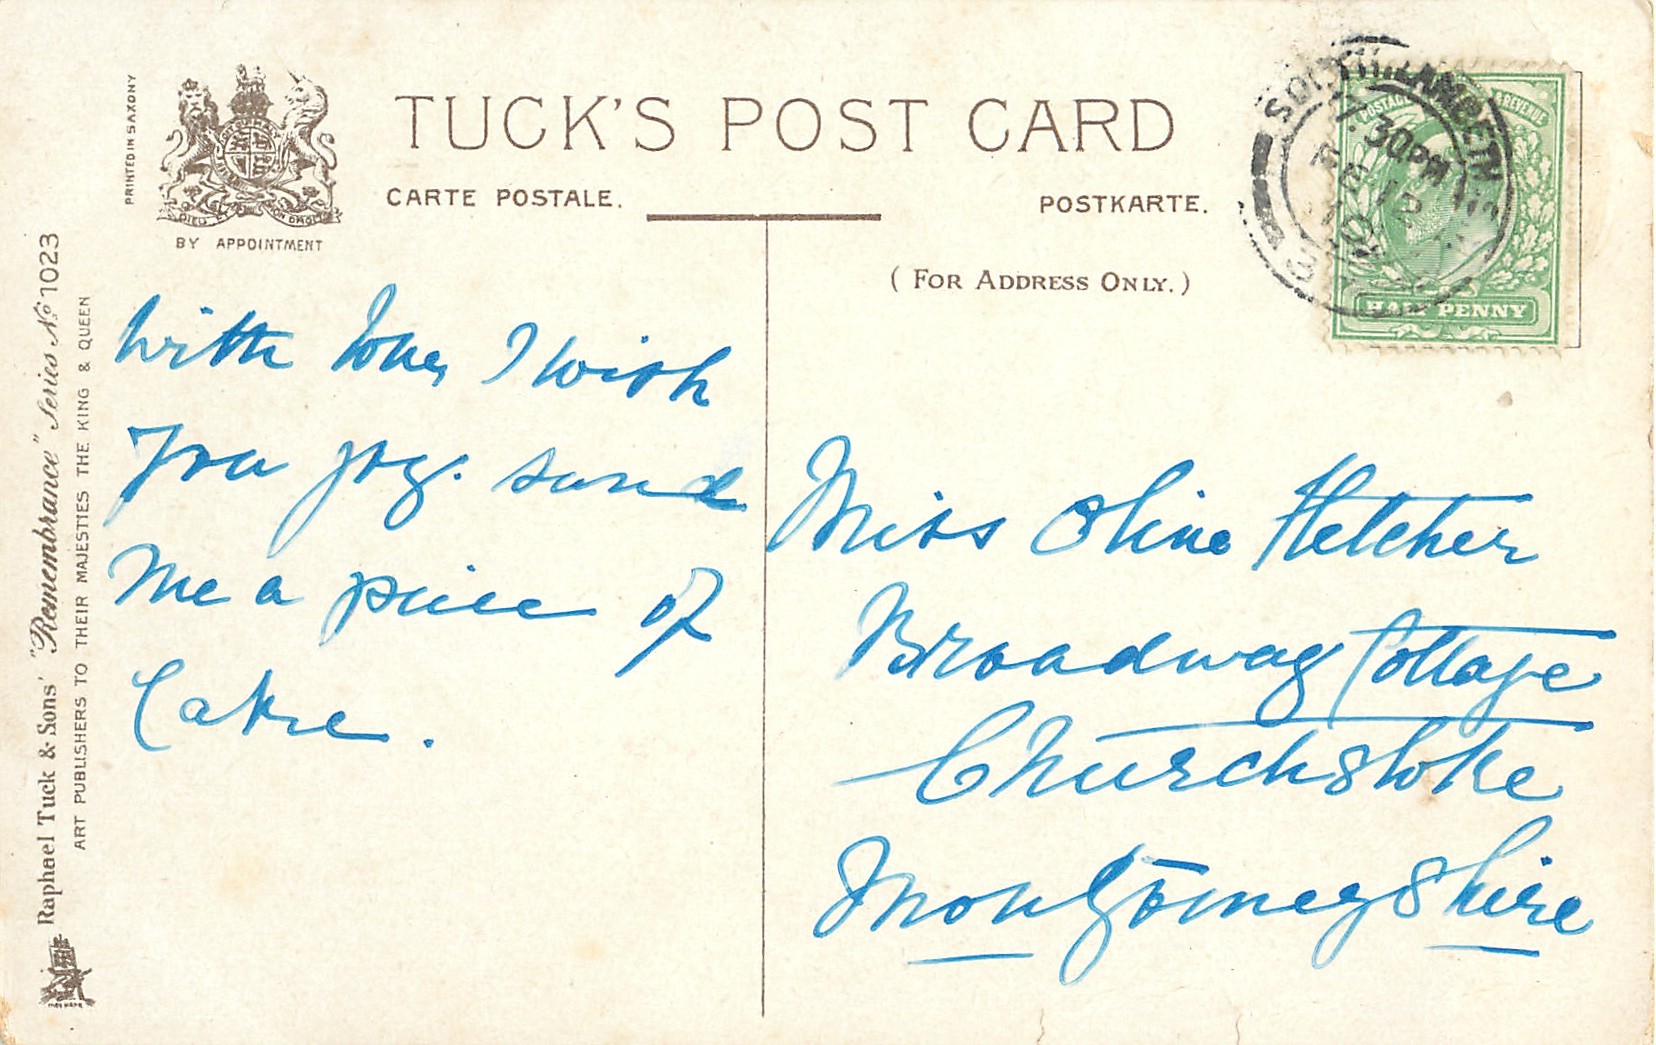 PRINTED IN SAXONY
BY APPOINTMENT
TUCK'S POST CARD
CARTE POSTALE.
POSTKARTE.
(FOR ADDRESS ONLY.)
Raphael Tuck & Sons' "Remembrance" Series No 1023
ART PUBLISHERS TO THEIR MAJESTIES THE KING & QUEEN
POSTAGE & REVENUE
HALF PENNY
SOUTH LAMBETH
7.30PM
FE 12
10
With love, I wish
you joy. send
me a piece of
Cake.
Miss Olive Fletcher
Broadway Cottage
Churchstoke
Montgomeryshire